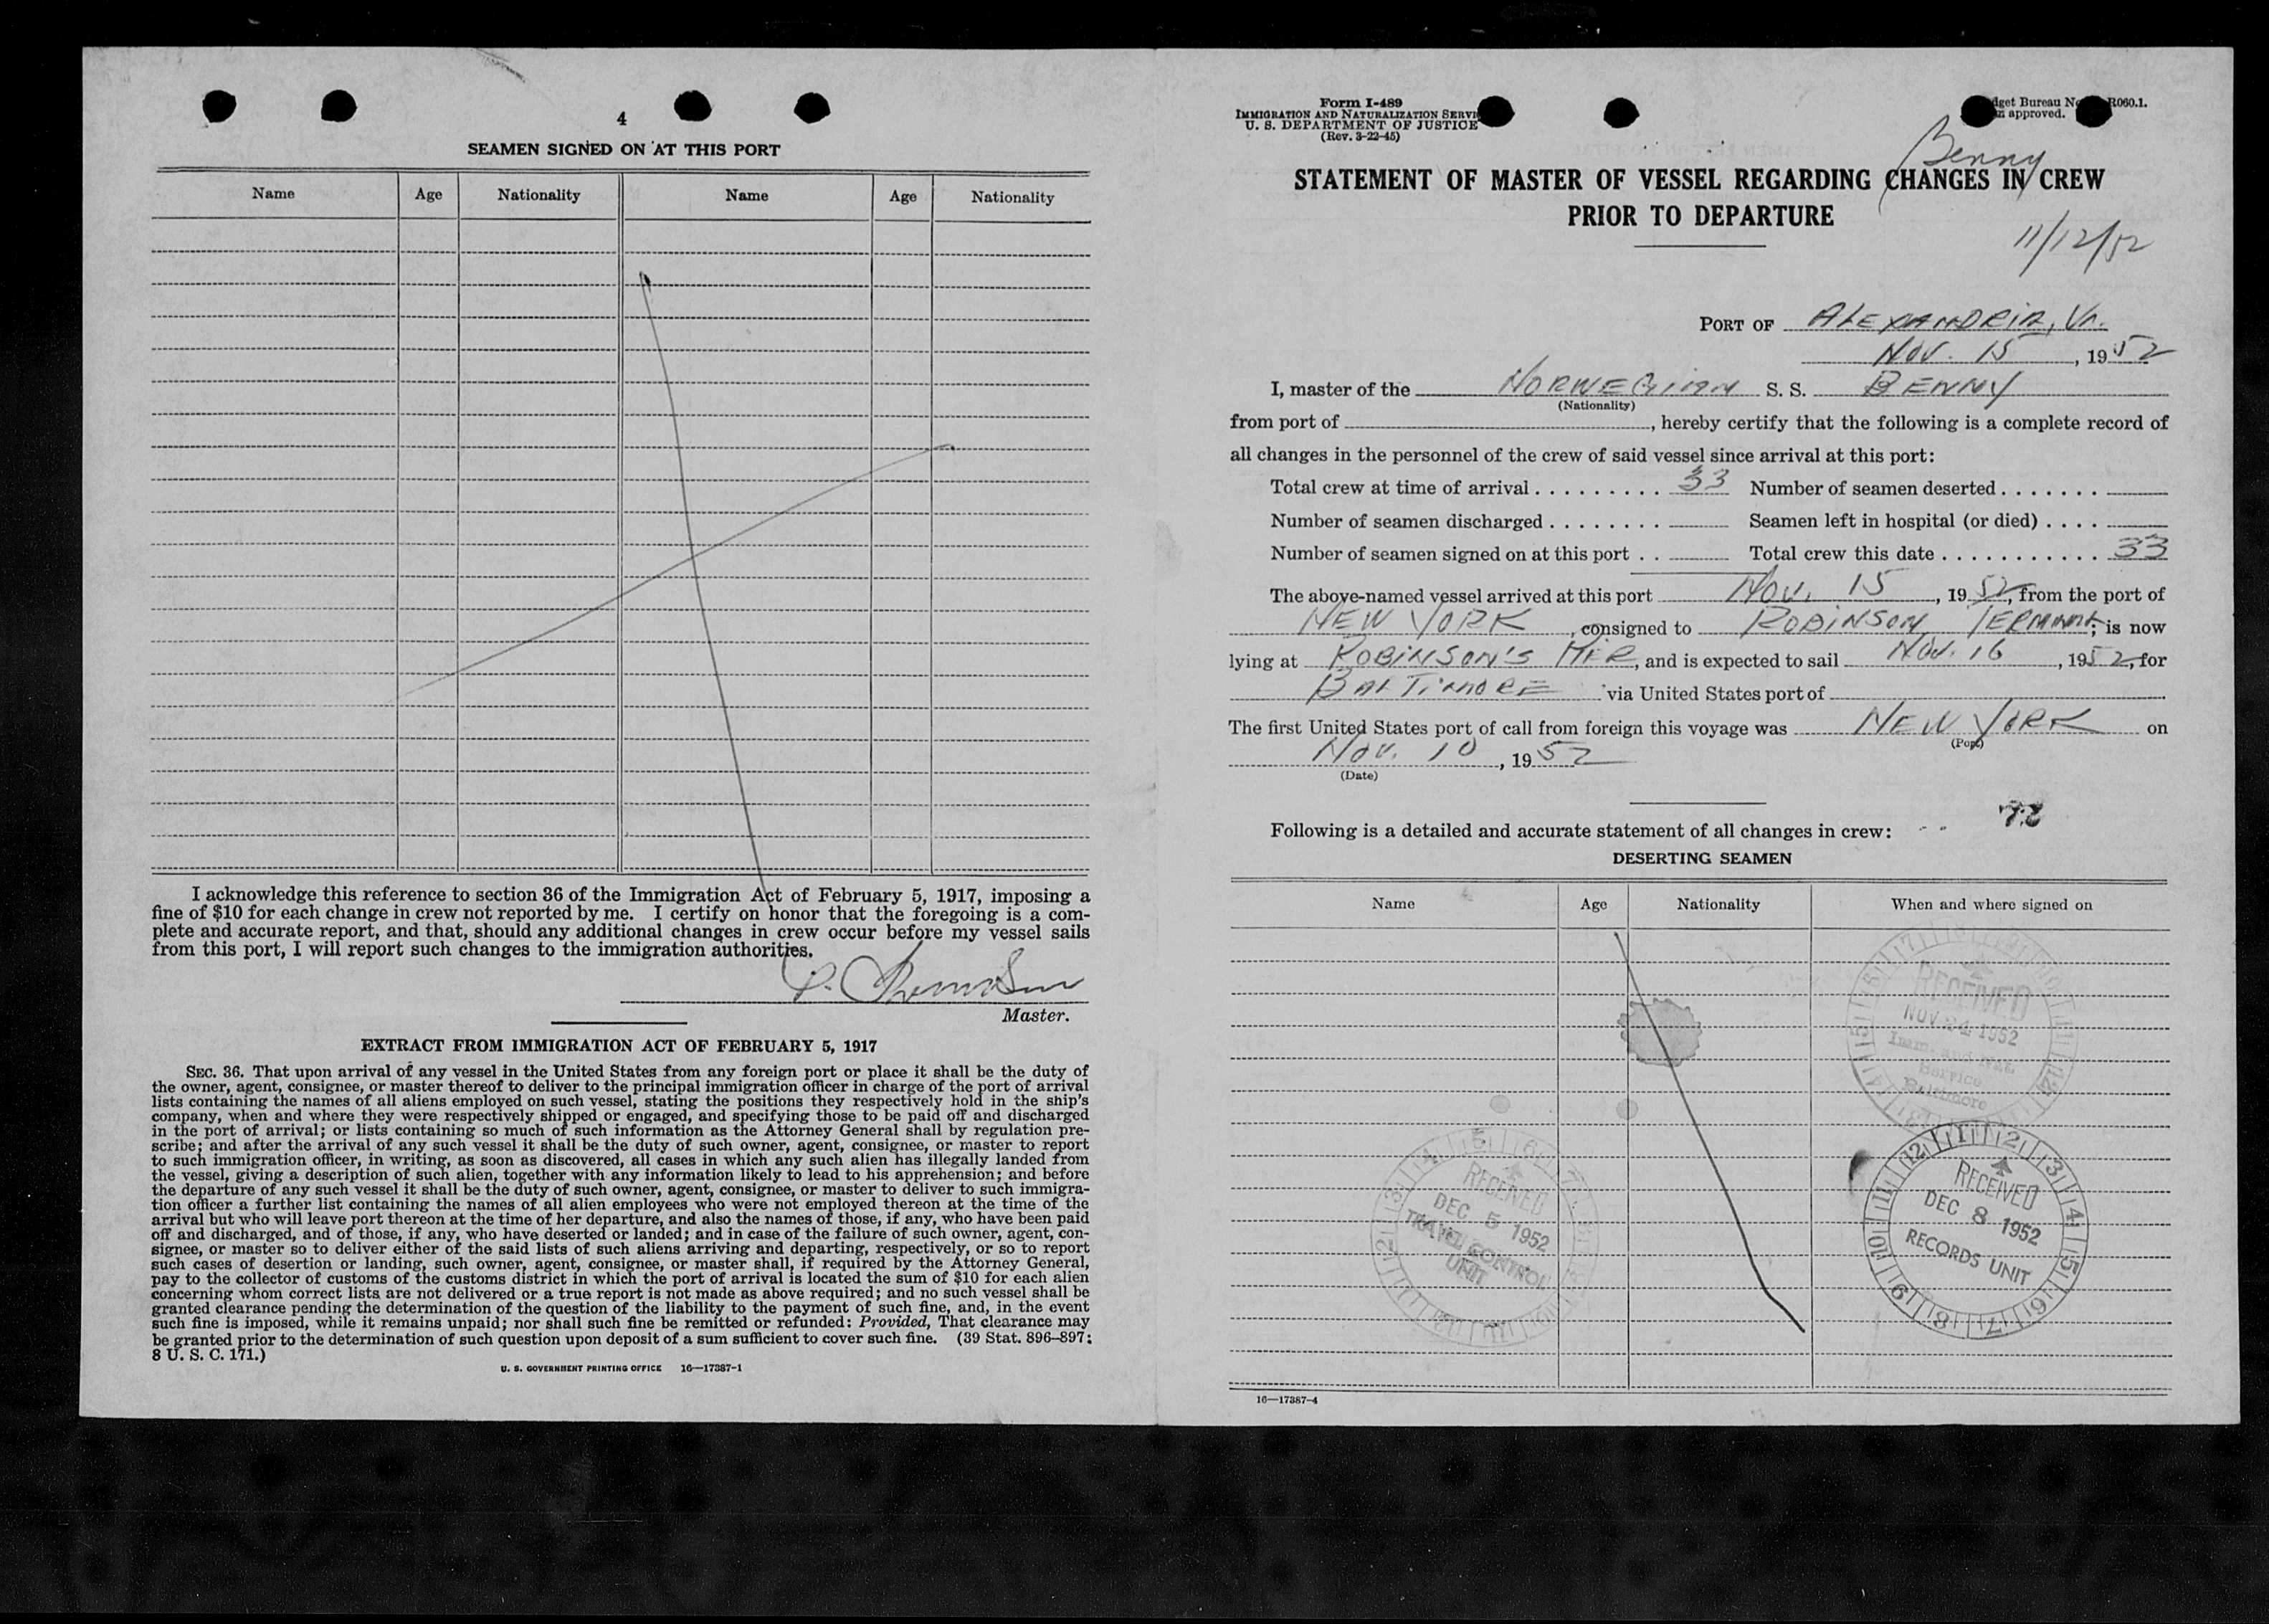 4
SEAMEN SIGNED ON AT THIS PORT
Name Age Nationality Name Age Nationality
I acknowledge this reference to section 36 of the Immigration Act of February 5, 1917, imposing a
fine of $10 for each change in crew not reported by me. I certify on honor that the foregoing is a com-
plete and accurate report, and that, should any additional changes in crew occur before my vessel sails
from this port, I will report such changes to the immigration authorities.
Master.
EXTRACT FROM IMMIGRATION ACT OF FEBRUARY 5, 1917
SEC. 36. That upon arrival of any vessel in the United States from any foreign port or place it shall be the duty of
the owner, agent, consignee, or master thereof to deliver to the principal immigration officer in charge of the port of arrival
lists containing the names of all aliens employed on such vessel, stating the positions they respectively hold in the ship's
company, when and where they were respectively shipped or engaged, and specifying those to be paid off and discharged
in the port of arrival; or lists containing so much of such information as the Attorney General shall by regulation pre-
scribe; and after the arrival of any such vessel it shall be the duty of such owner, agent, consignee, or master to report
to such immigration officer, in writing, as soon as discovered, all cases in which any such alien has illegally landed from
the vessel, giving a description of such alien, together with any information likely to lead to his apprehension; and before
the departure of any such vessel it shall be the duty of such owner, agent, consignee, or master to deliver to such immigra-
tion officer a further list containing the names of all alien employees who were not employed thereon at the time of the
arrival but who will leave port thereon at the time of her departure, and also the names of those, if any, who have been paid
off and discharged, and of those, if any, who have deserted or landed; and in case of the failure of such owner, agent, con-
signee, or master so to deliver either of the said lists of such aliens arriving and departing, respectively, or so to report
such cases of desertion or landing, such owner, agent, consignee, or master shall, if required by the Attorney General,
pay to the collector of customs of the customs district in which the port of arrival is located the sum of $10 for each alien
concerning whom correct lists are not delivered or a true report is not made as above required; and no such vessel shall be
granted clearance pending the determination of the question of the liability to the payment of such fine, and, in the event
such fine is imposed, while it remains unpaid; nor shall such fine be remitted or refunded: Provided, That clearance may
be granted prior to the determination of such question upon deposit of a sum sufficient to cover such fine. (39 Stat. 896–897;
8 U. S. C. 171.)
U. S. GOVERNMENT PRINTING OFFICE 16—17387-1
Form I-489
IMMIGRATION AND NATURALIZATION SERVI
U. S. DEPARTMENT OF JUSTICE
(Rev. 3-22-45)
dget Bureau No R060.1.
approved.
Benny
STATEMENT OF MASTER OF VESSEL REGARDING CHANGES IN CREW
PRIOR TO DEPARTURE
11/12/52
PORT OF ALEXANDRIA, Va.
NOV. 15, 1952
I, master of the NORWEGIAN S. S. BENNY
(Nationality)
from port of , hereby certify that the following is a complete record of
all changes in the personnel of the crew of said vessel since arrival at this port:
Total crew at time of arrival . . . . . . . . . 33 Number of seamen deserted . . . . . . .
Number of seamen discharged . . . . . . . . Seamen left in hospital (or died) . . . .
Number of seamen signed on at this port . . Total crew this date . . . . . . . . . . . 33
The above-named vessel arrived at this port NOV. 15, 1952, from the port of
NEW YORK, consigned to ROBINSON TERMINAL; is now
lying at ROBINSON'S PIER, and is expected to sail NOV. 16, 1952, for
BALTIMORE via United States port of
The first United States port of call from foreign this voyage was NEW YORK on
(Port)
NOV. 10, 1952
(Date)
Following is a detailed and accurate statement of all changes in crew:
DESERTING SEAMEN
Name Age Nationality When and where signed on
RECEIVED
NOV 24 1952
Imm. and Nat.
Service
Baltimore
RECEIVED
DEC 5 1952
TRAVEL CONTROL
UNIT
12 1 2 3 4 5 6 7 8 9 10 11
RECEIVED
DEC 8 1952
RECORDS UNIT
16—17387-4